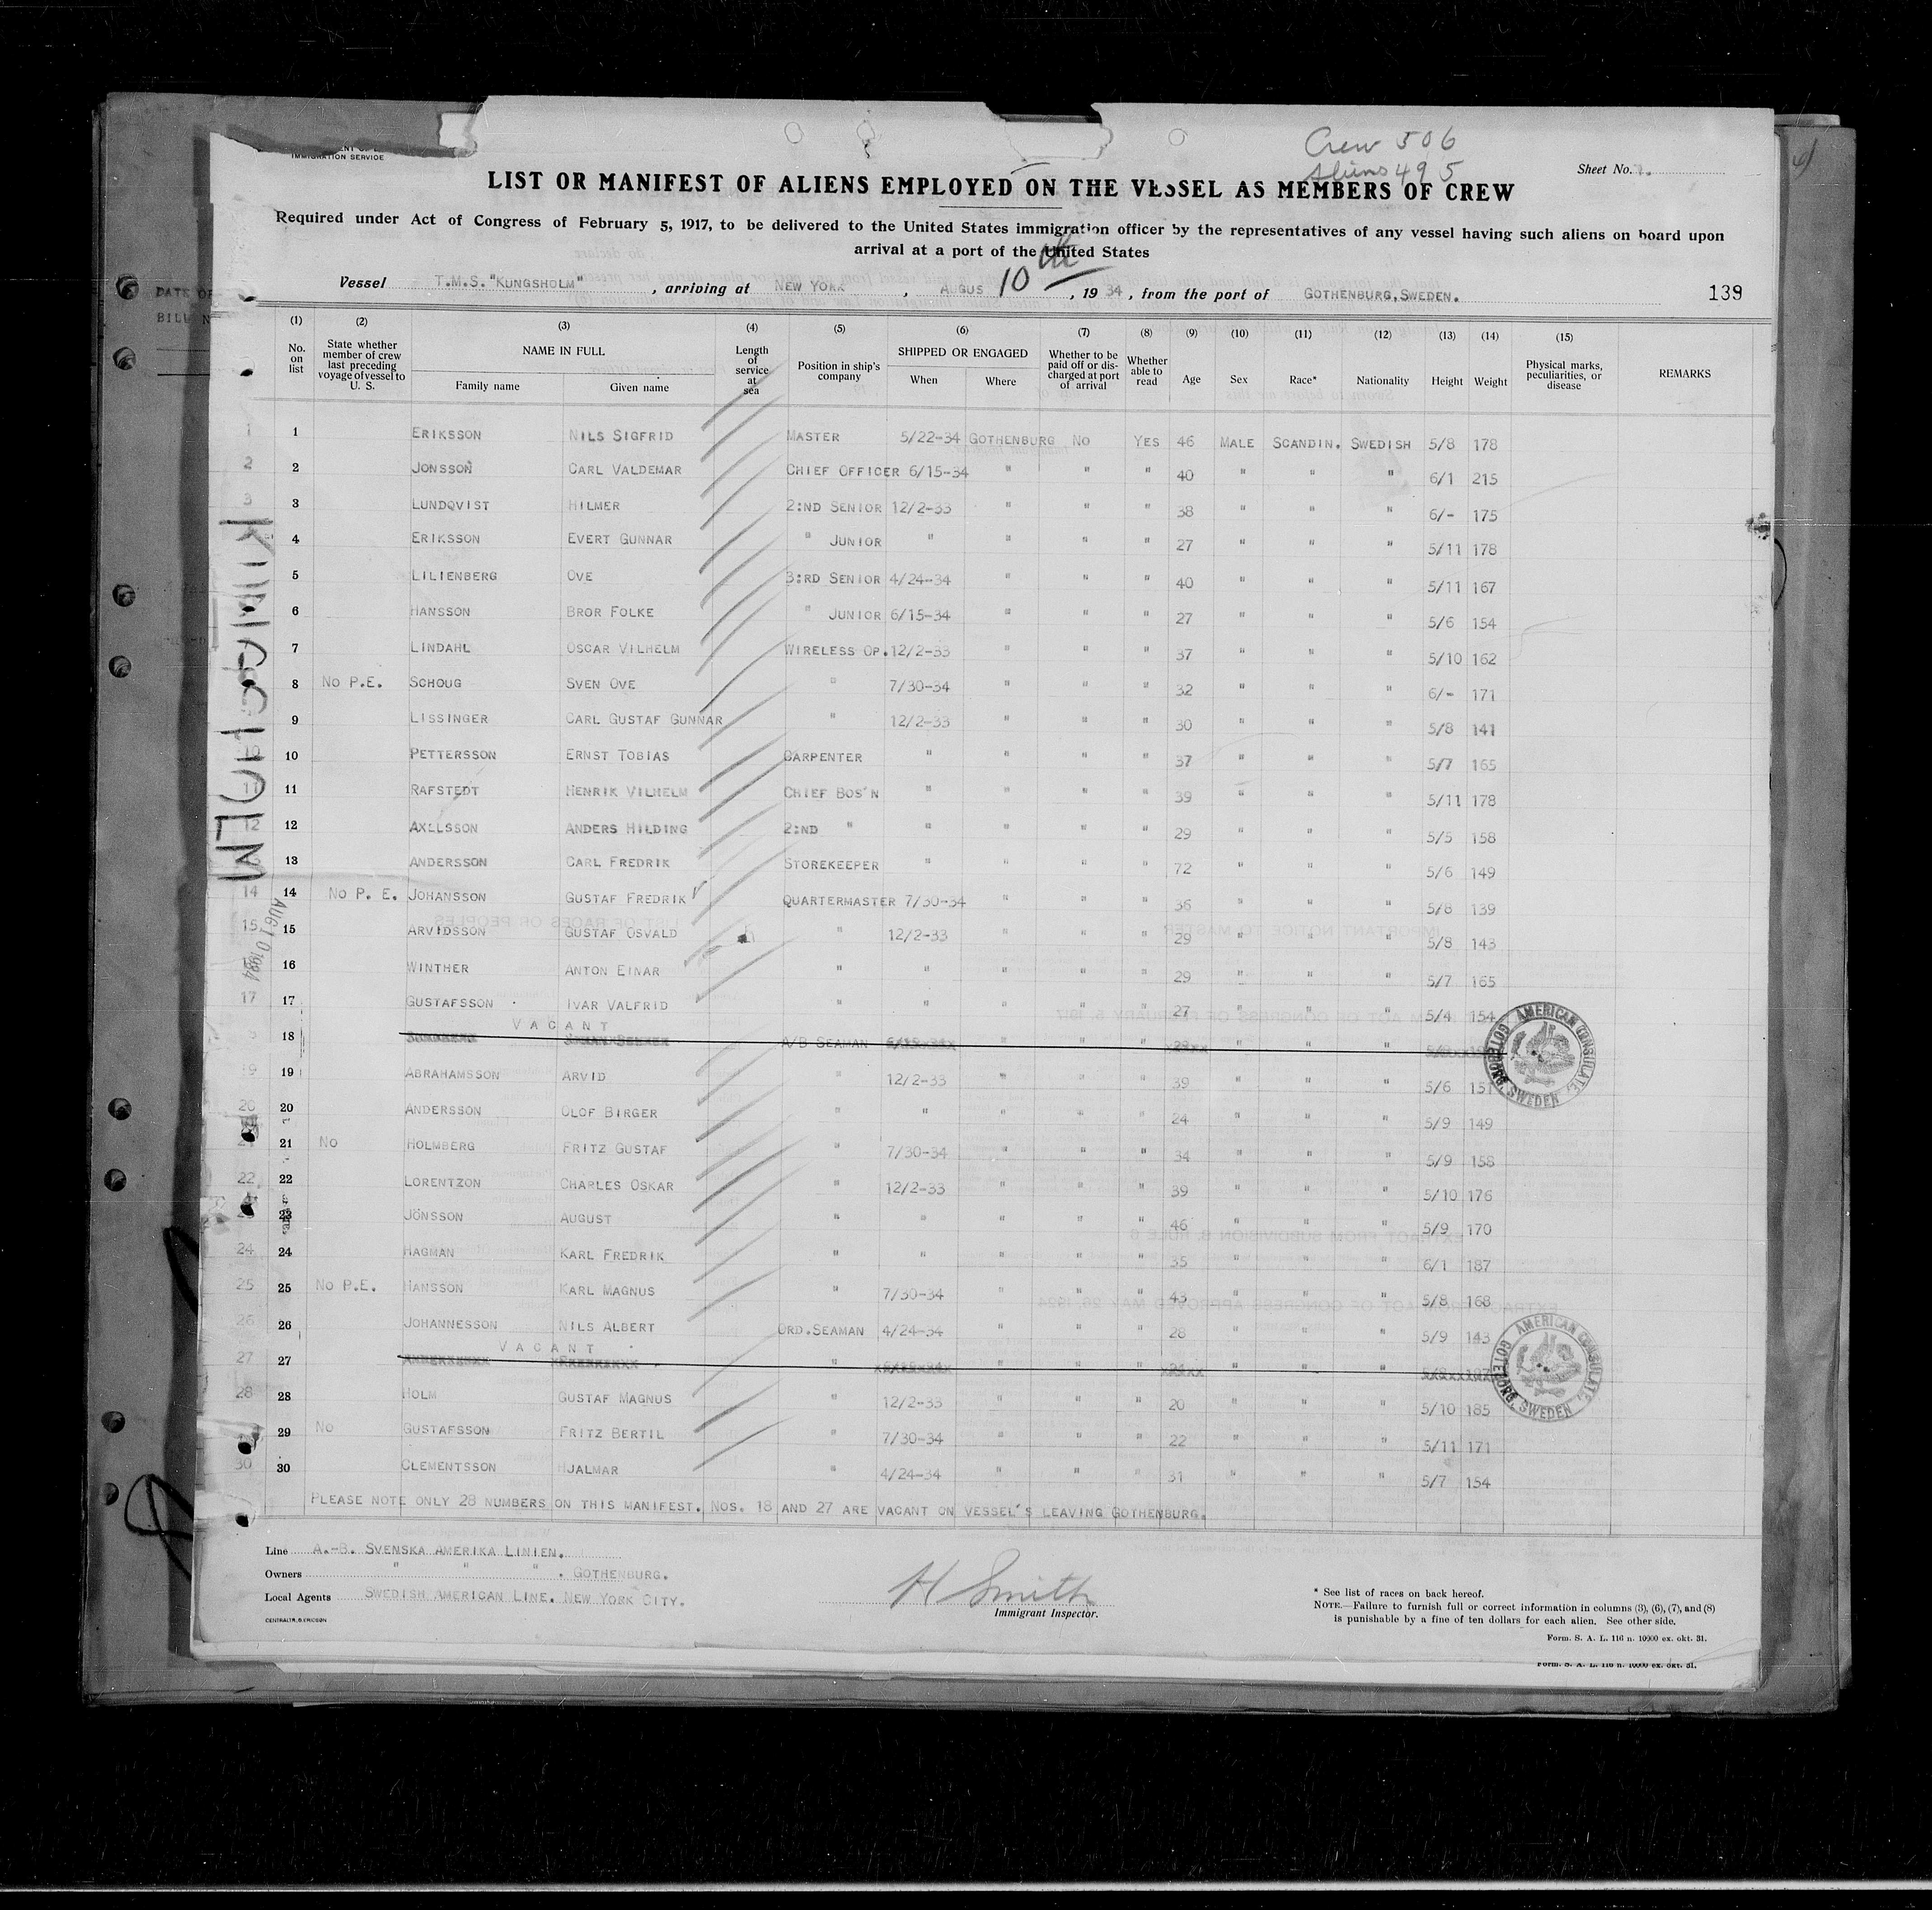 Crew 506
Aliens 495
IMMIGRATION SERVICE
Sheet No. 1.
LIST OR MANIFEST OF ALIENS EMPLOYED ON THE VESSEL AS MEMBERS OF CREW
Required under Act of Congress of February 5, 1917, to be delivered to the United States immigration officer by the representatives of any vessel having such aliens on board upon
arrival at a port of the United States
Vessel T.M.S. "KUNGSHOLM" , arriving at NEW YORK , AUGUS 10th , 19 34 , from the port of GOTHENBURG, SWEDEN. 139
DATE OF
BILL N
KUNGSHOLM
AUG 10 1934
(1) (2) (3) (4) (5) (6) (7) (8) (9) (10) (11) (12) (13) (14) (15)
No. on list State whether member of crew last preceding voyage of vessel to U. S. NAME IN FULL Family name Given name Length of service at sea Position in ship's company SHIPPED OR ENGAGED When Where Whether to be paid off or discharged at port of arrival Whether able to read Age Sex Race* Nationality Height Weight Physical marks, peculiarities, or disease REMARKS
1 1 ERIKSSON NILS SIGFRID MASTER 5/22-34 GOTHENBURG NO YES 46 MALE SCANDIN. SWEDISH 5/8 178
2 2 JONSSON CARL VALDEMAR CHIEF OFFICER 6/15-34 " " " 40 " " " 6/1 215
3 3 LUNDQVIST HILMER 2:ND SENIOR 12/2-33 " " " 38 " " " 6/- 175
4 ERIKSSON EVERT GUNNAR " JUNIOR " " " " 27 " " " 5/11 178
5 LILIENBERG OVE 3:RD SENIOR 4/24-34 " " " 40 " " " 5/11 167
6 HANSSON BROR FOLKE " JUNIOR 6/15-34 " " " 27 " " " 5/6 154
7 LINDAHL OSCAR VILHELM WIRELESS OP. 12/2-33 " " " 37 " " " 5/10 162
8 NO P.E. SCHOUG SVEN OVE " 7/30-34 " " " 32 " " " 6/- 171
9 LISSINGER CARL GUSTAF GUNNAR " 12/2-33 " " " 30 " " " 5/8 141
10 10 PETTERSSON ERNST TOBIAS CARPENTER " " " " 37 " " " 5/7 165
11 11 RAFSTEDT HENRIK VILHELM CHIEF BOS'N " " " " 39 " " " 5/11 178
12 12 AXELSSON ANDERS HILDING 2:ND " " " " " 29 " " " 5/5 158
13 ANDERSSON CARL FREDRIK STOREKEEPER " " " " 72 " " " 5/6 149
14 14 NO P. E. JOHANSSON GUSTAF FREDRIK QUARTERMASTER 7/30-34 " " " 36 " " " 5/8 139
15 15 ARVIDSSON GUSTAF OSVALD " 12/2-33 " " " 29 " " " 5/8 143
16 WINTHER ANTON EINAR " " " " " 29 " " " 5/7 165
17 17 GUSTAFSSON IVAR VALFRID " " " " " 27 " " " 5/4 154
18 VACANT A/B SEAMAN " " " " " "
19 19 ABRAHAMSSON ARVID " 12/2-33 " " " 39 " " " 5/6 151
20 20 ANDERSSON OLOF BIRGER " " " " " 24 " " " 5/9 149
21 NO HOLMBERG FRITZ GUSTAF " 7/30-34 " " " 34 " " " 5/9 158
22 22 LORENTZON CHARLES OSKAR " 12/2-33 " " " 39 " " " 5/10 176
23 JÖNSSON AUGUST " " " " " 46 " " " 5/9 170
24 24 HAGMAN KARL FREDRIK " " " " " 35 " " " 6/1 187
25 25 NO P.E. HANSSON KARL MAGNUS " 7/30-34 " " " 43 " " " 5/8 168
26 26 JOHANNESSON NILS ALBERT ORD. SEAMAN 4/24-34 " " " 28 " " " 5/9 143
27 27 VACANT " " " " " " "
28 28 HOLM GUSTAF MAGNUS " 12/2-33 " " " 20 " " " 5/10 185
29 NO GUSTAFSSON FRITZ BERTIL " 7/30-34 " " " 22 " " " 5/11 171
30 30 CLEMENTSSON HJALMAR " 4/24-34 " " " 31 " " " 5/7 154
PLEASE NOTE ONLY 28 NUMBERS ON THIS MANIFEST. NOS. 18 AND 27 ARE VACANT ON VESSEL'S LEAVING GOTHENBURG.
AMERICAN CONSULATE, GOTEBORG, SWEDEN
AMERICAN CONSULATE, GOTEBORG, SWEDEN
Line A.-B. SVENSKA AMERIKA LINIEN.
Owners " " " . GOTHENBURG.
Local Agents SWEDISH AMERICAN LINE. NEW YORK CITY.
CENTRALTR. G. ERICSON
H Smith
Immigrant Inspector.
* See list of races on back hereof.
NOTE.—Failure to furnish full or correct information in columns (3), (6), (7), and (8)
is punishable by a fine of ten dollars for each alien. See other side.
Form. S. A. L. 116 n. 10900 ex. okt. 31.
Form. S. A. L. 116 n. 10000 ex. okt. 31.